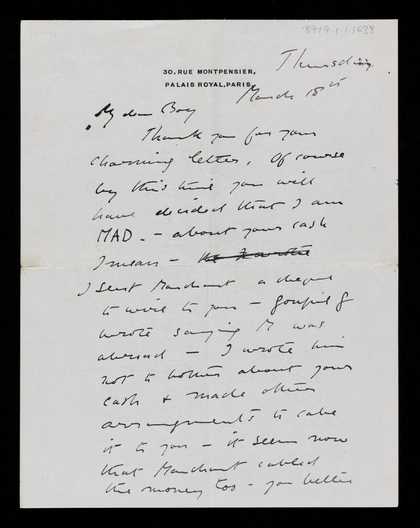 30, RUE MONTPENSIER,
PALAIS ROYAL, PARIS.
Thursday
March 18th
My dear Boy
Thank you for your
charming letter. Of course
by this time you will
have decided that I am
MAD. - about your cash
I mean -
I sent Marchant a cheque
to wire to you -
wrote saying M was
abroad - I wrote him
not to bother about your
cash & made other
arrangements to cable
it to you - it seems now
that Marchant cabled
the money too - you better